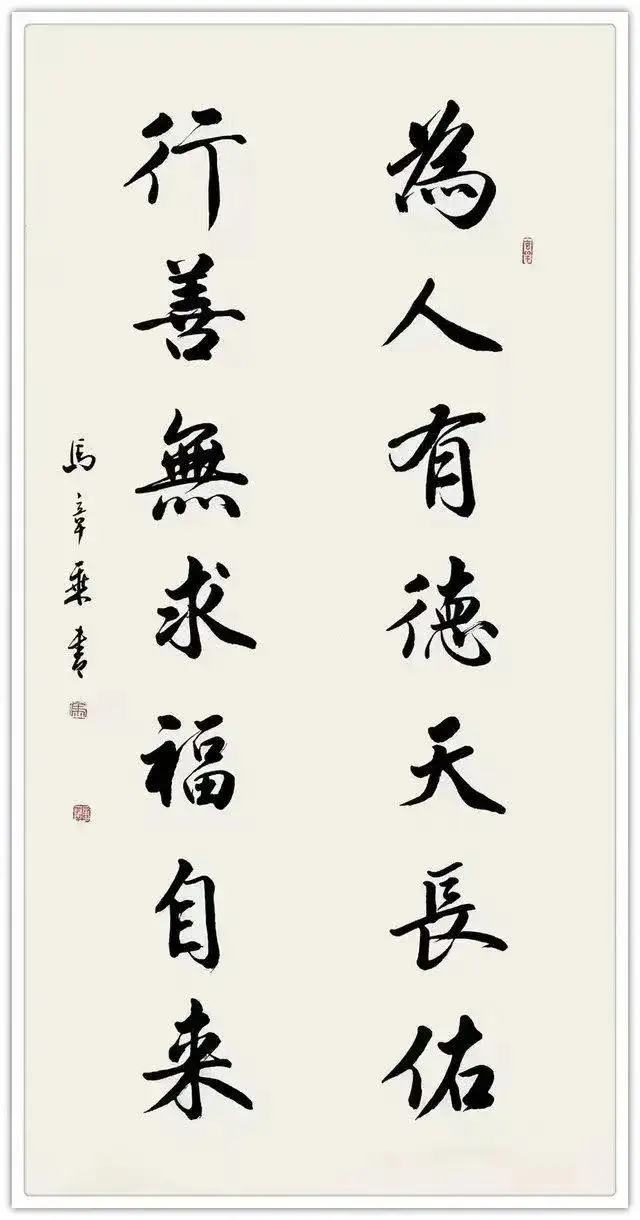 為人有德天長佑
行善無求福自来
馬章乘書